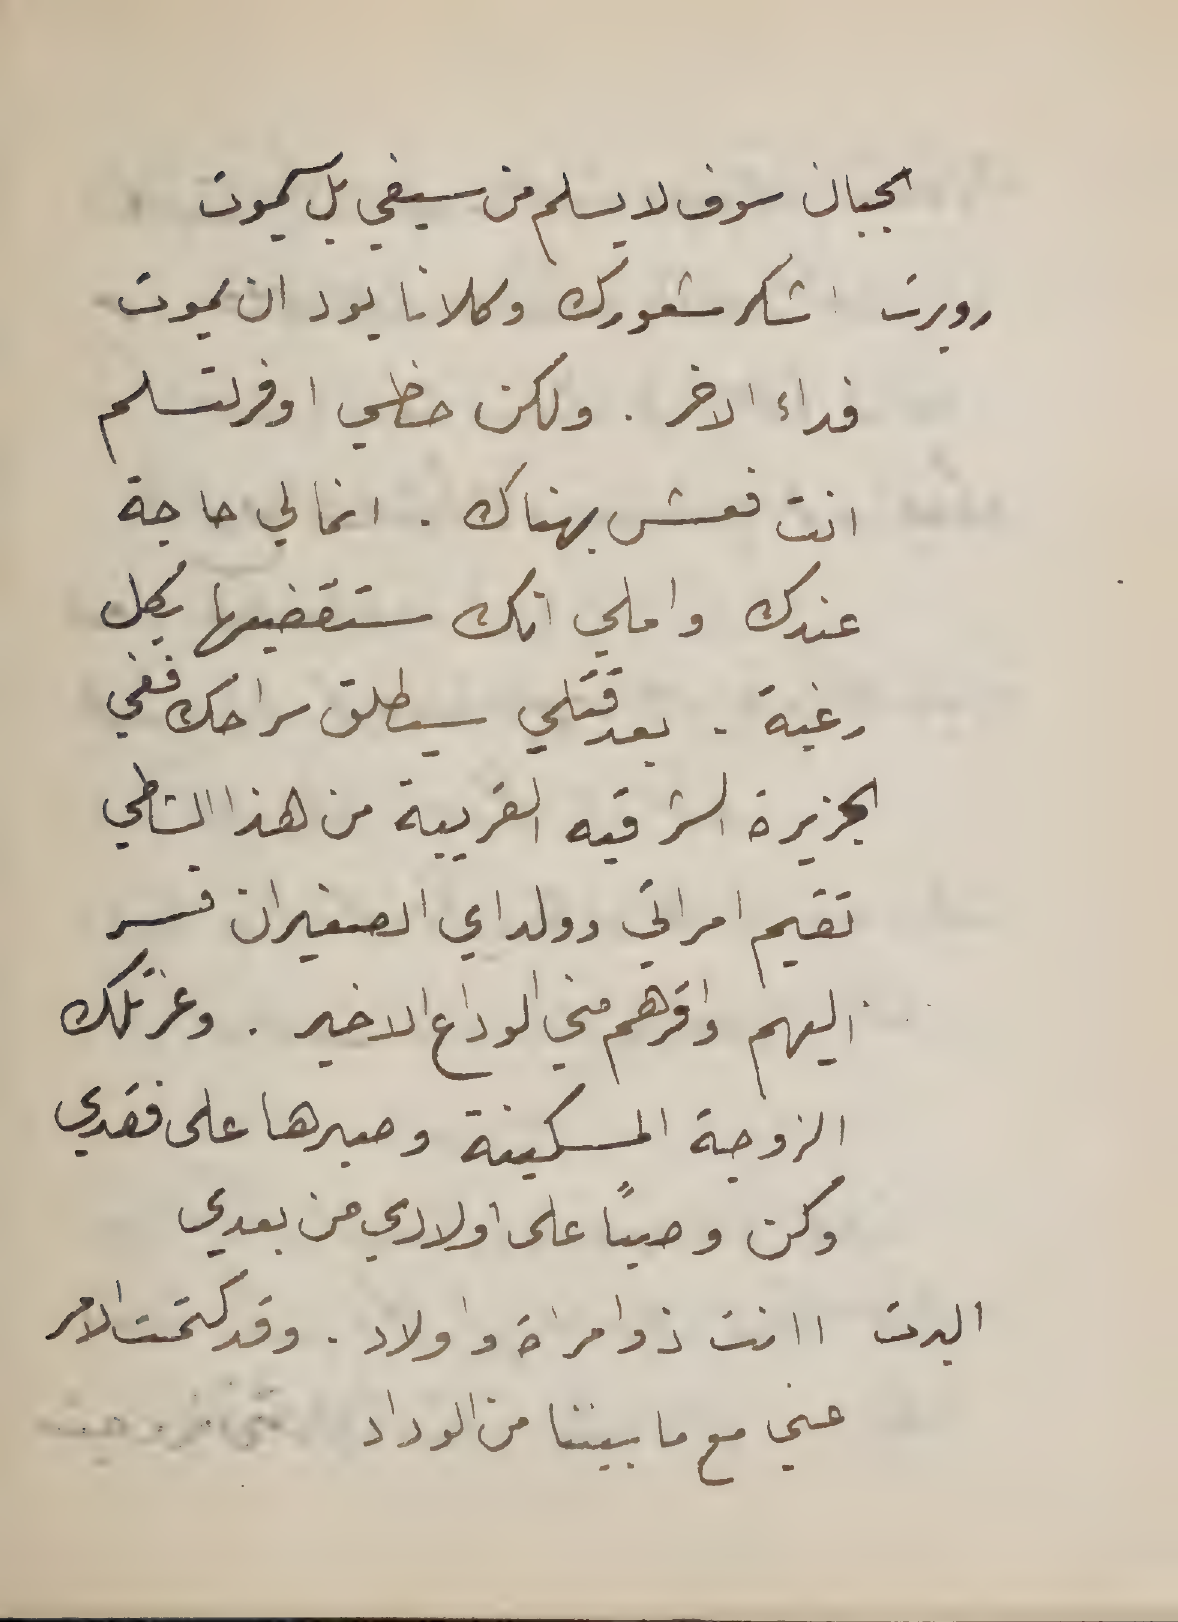 الجبان سوف لا يسلم من سيفي بل سيموت
روبرت اشكر شعورك وكلانا يود ان يموت
فداء الاخر . ولكن حظي اوفر لتسلم
انت فعش بهناك . انما لي حاجة
عندك واملي انك ستقضيها بكل
رغبة . بعد قتلي سيطلق سراحك ففي
الجزيرة الشرقيه القريبة من هذا الشاطي
تقيم امراتي وولداي الصغيران فسر
اليهم واقرهم مني الوداع الاخير . وعز تلك
الزوجة المسكينة وصبرها على فقدي
وكن وصيًا على اولادي من بعدي
البرت اانت ذو امراة واولاد . وقد كتمت الامر
عني مع ما بيننا من الوداد